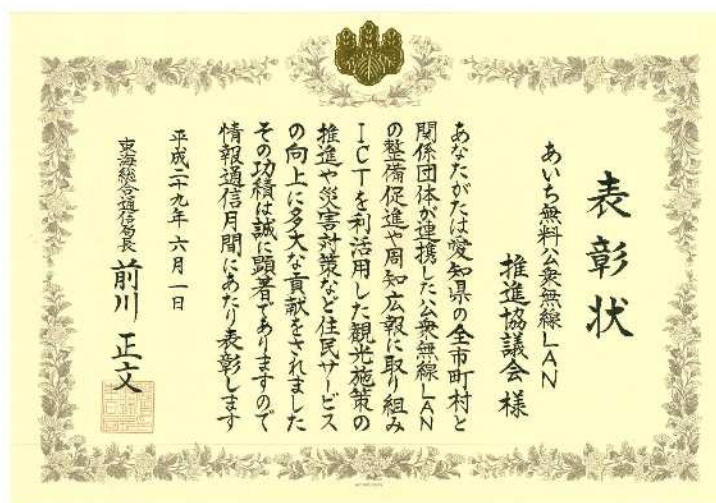 表彰状
あいち無料公衆無線LAN
推進協議会様
あなたがたは愛知県の全市町村と
関係団体が連携した公衆無線LAN
の整備促進や周知広報に取り組み
ICTを利活用した観光施策の
推進や災害対策など住民サービス
の向上に多大な貢献をされました
その功績は誠に顕著でありますので
情報通信月間にあたり表彰します
平成二十九年六月一日
東海総合通信局長 前川正文